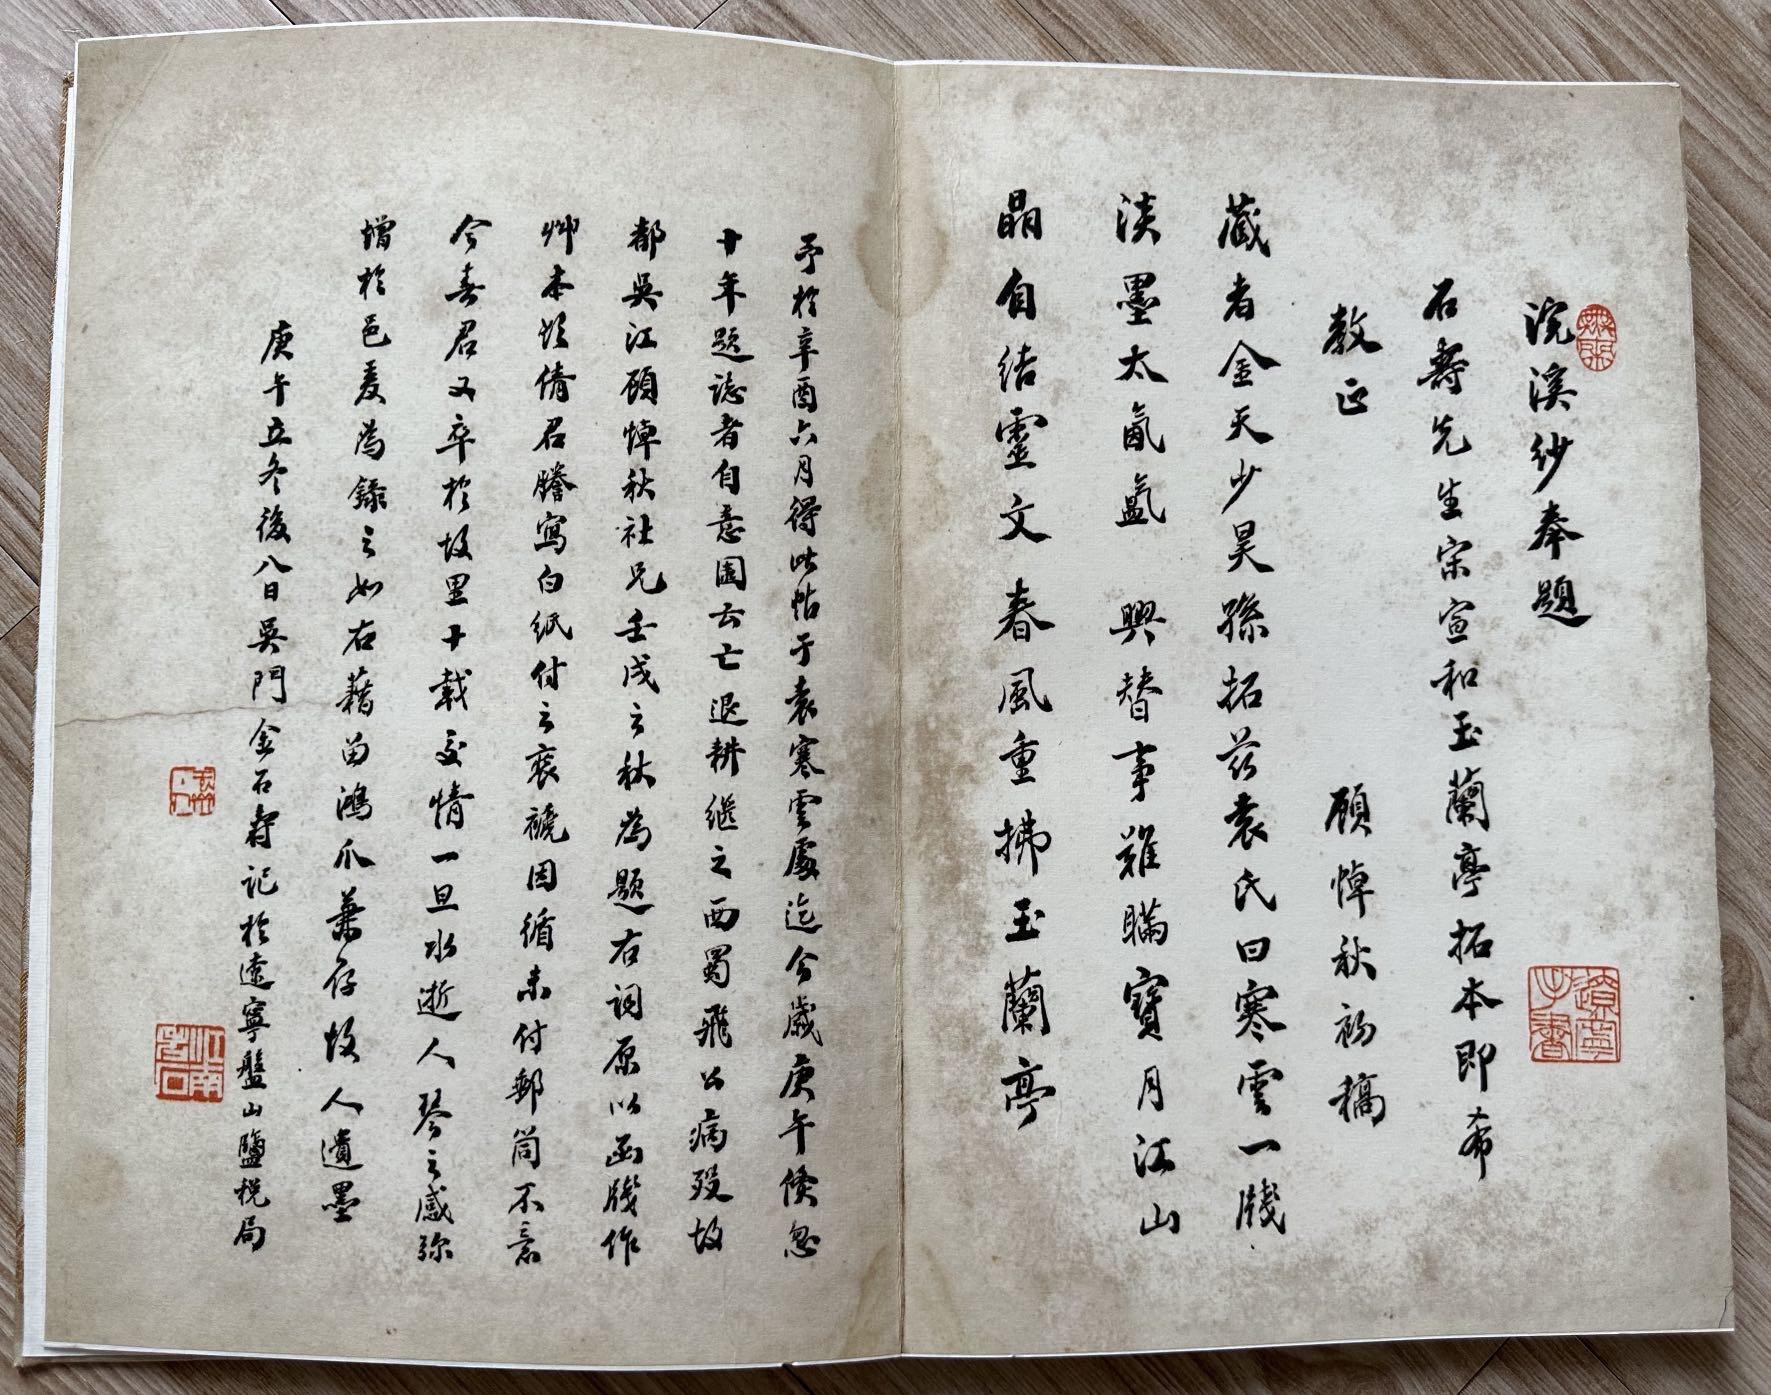 浣溪紗奉題
石壽先生宋宣和玉蘭亭拓本即希
教正
顧悼秋初稿
藏者金天少昊孫拓茲袁氏曰寒雲一牋
淡墨太氤氳 興替事難瞞寶月江山
晶自結靈文春風重拂玉蘭亭
予於辛酉六月得此帖于袁寒雲處迄今歲庚午倏忽
十年題誌者自意園云亡退耕繼之西蜀飛公病歿故
都吳江顧悼秋社兄壬戌之秋為題右詞原以函牋作
艸本恐倩君謄寫白紙付之裘褫因循未付郵筒不意
今春君又卒於故里十載交情一旦水逝人琴之感彌
增於邑爰為錄之如右藉留鴻爪兼存故人遺墨
庚午立冬後八日吳門金石壽記於遼寧盤山鹽稅局
遼寧